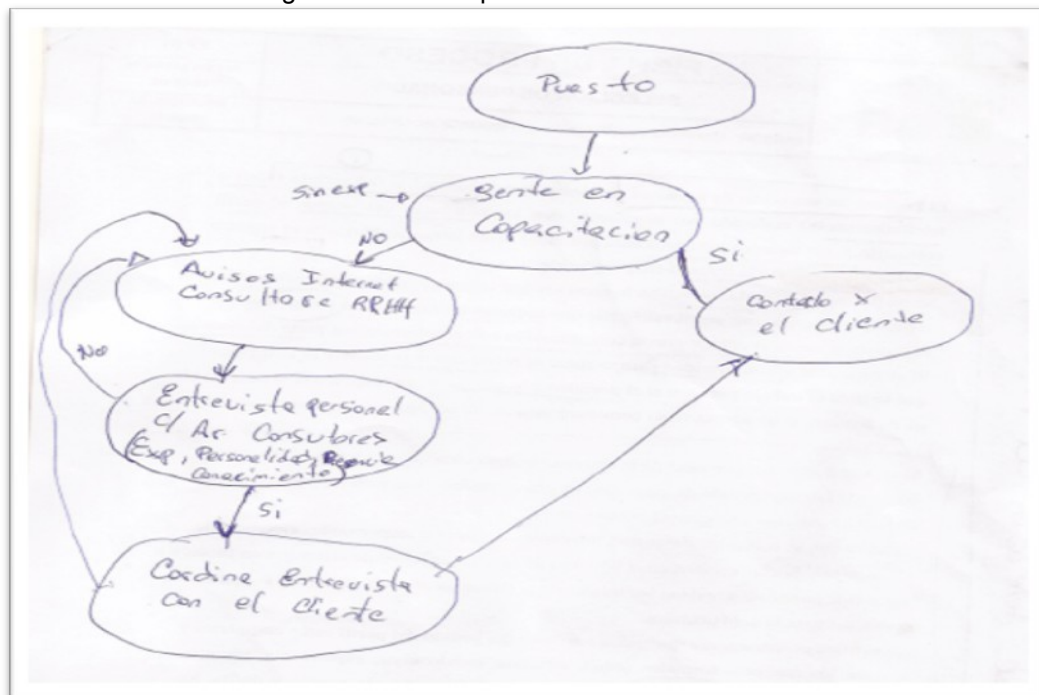 Puesto
sin exp
Gente en
Capacitacion
NO
Si
Avisos Internet
Consultora RRHH
Contacto x
el cliente
No
Entrevista personal
c/ Ar Consultores
(Exp, Personalidad,
Conocimiento)
Si
Cordina Entrevista
con el cliente